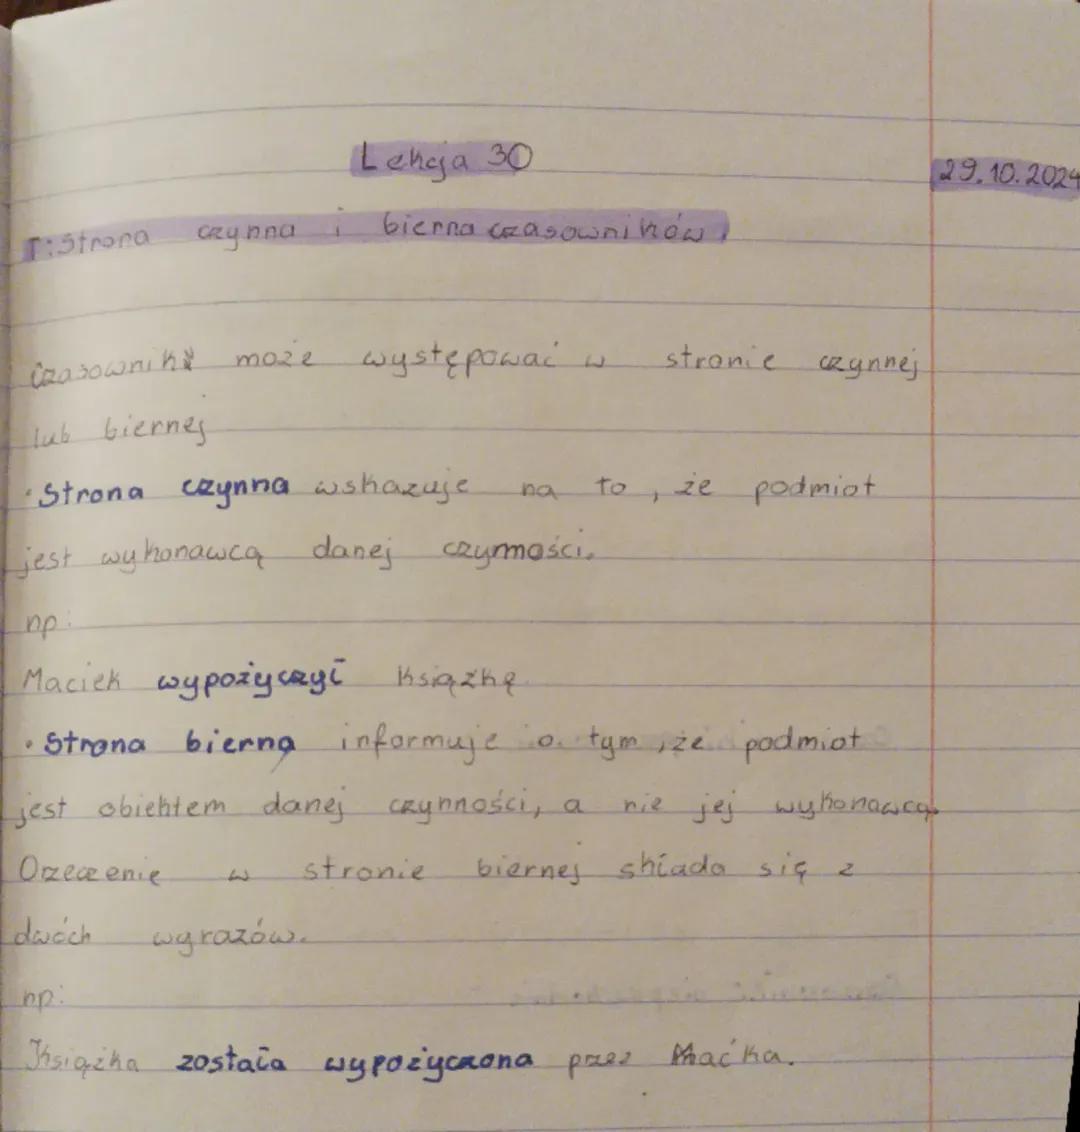 Lekcja 30
29.10.2024
T: Strona czynna i bierna czasowników.
Czasownik może występować w stronie czynnej
lub biernej
• Strona czynna wskazuje na to, że podmiot
jest wykonawcą danej czynności.
np:
Maciek wypożyczył książkę.
• Strona bierna informuje o tym, że podmiot
jest obiektem danej czynności, a nie jej wykonawcą.
Orzeczenie w stronie biernej składa się z
dwóch wyrazów.
np:
Książka została wypożyczona przez Maćka.